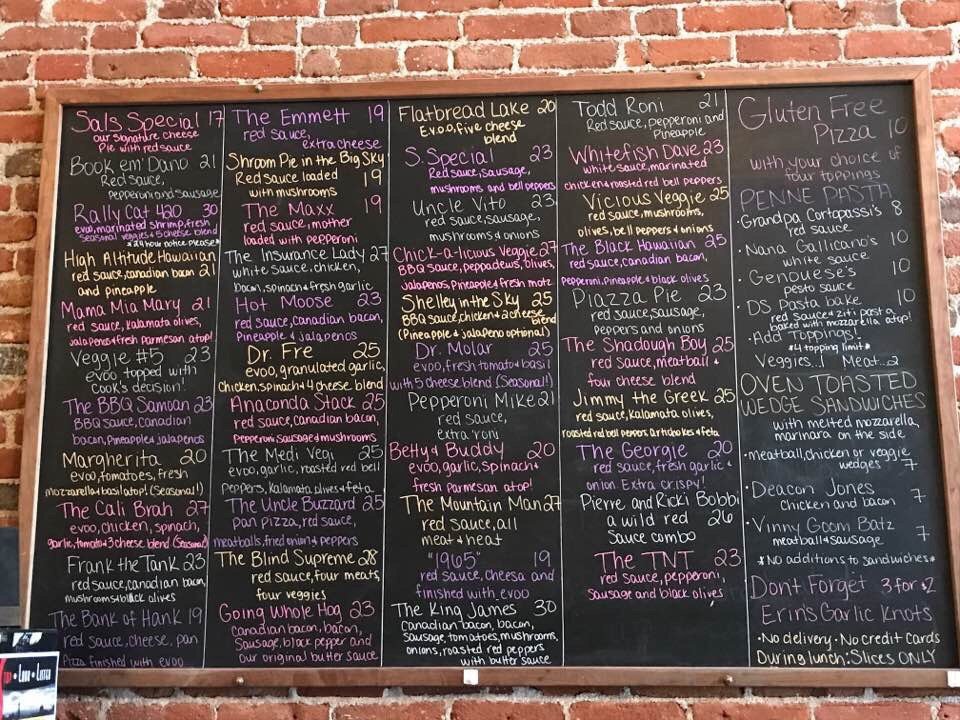 Sals Special 17
our signature cheese
Pie with red sauce
Book em' Dano 21
Red sauce,
pepperoni and sausage
Rally Cat 420 30
evoo, marinated shrimp, fresh
seasonal veggies & 5 cheese blend
*24 hour notice please*
High Altitude Hawaiian
red sauce, canadian bacon 21
and pineapple
Mama Mia Mary 21
red sauce, Kalamata olives,
jalapenos & fresh Parmesan atop!
Veggie #5 23
evoo topped with
Cook's decision!
The BBQ Samoan 23
BBQ sauce, canadian
bacon, Pineapple & jalapenos
Margherita 20
evoo, tomatoes, fresh
mozzarella & basil atop! (Seasonal!)
The Cali Brah 27
evoo, chicken, spinach,
garlic, tomato & 3 cheese blend (Seasonal)
Frank the Tank 23
red sauce, canadian bacon,
mushrooms & black olives
The Bank of Hank 19
red sauce, cheese, pan
Pizza finished with evoo
The Emmett 19
red sauce,
extra cheese
Shroom Pie in the Big Sky
Red sauce loaded 19
with mushrooms
The Maxx 19
red sauce, mother
loaded with pepperoni
The Insurance Lady 27
white sauce, chicken,
bacon, spinach & fresh garlic
Hot Moose 23
red sauce, Canadian bacon,
Pineapple & jalapenos
Dr. Fre 25
evoo, granulated garlic,
chicken, spinach & 4 cheese blend
Anaconda Stack 25
red sauce, canadian bacon,
Pepperoni sausage & mushrooms
The Medi Vegi 25
evoo, garlic, roasted red bell
peppers, Kalamata olives & feta
The Uncle Buzzard 25
Pan Pizza, red sauce,
meatballs, fried onion & peppers
The Blind Supreme 28
red sauce, four meats,
four veggies
Going Whole Hog 23
Canadian bacon, bacon,
Sausage, black pepper and
our original butter sauce
Flatbread Lake 20
Evoo, five cheese
blend
S. Special 23
Red sauce, sausage,
mushrooms and bell peppers
Uncle Vito 23
red sauce, sausage,
mushrooms & onions
Chick-a-licious Veggie 27
BBQ sauce, peppadews, olives,
jalapenos, Pineapple & fresh motz
Shelley in the Sky 25
BBQ sauce, chicken & 2 cheese
blend
(Pineapple & jalapeno optional)
Dr. Molar 25
evoo, fresh tomato & basil
with 5 cheese blend (Seasonal!)
Pepperoni Mike 21
red sauce,
extra 'roni
Betty & Buddy 20
evoo, garlic, spinach &
fresh Parmesan atop!
The Mountain Man 27
red sauce, all
meat & heat
"1965" 19
red sauce, Cheesa and
finished with evoo
The King James 30
Canadian bacon, bacon,
Sausage, tomatoes, mushrooms,
onions, roasted red peppers
with butter sauce
Todd Roni 21
Red sauce, pepperoni and
Pineapple
Whitefish Dave 23
white sauce, marinated
chicken & roasted red bell peppers
Vicious Veggie 25
red sauce, mushrooms,
olives, bell peppers & onions
The Black Hawaiian 25
red sauce, canadian bacon,
Pepperoni, Pineapple & black olives
Piazza Pie 23
red sauce, sausage,
peppers and onions
The Shadough Boy 25
red sauce, meatball &
four cheese blend
Jimmy the Greek 25
red sauce, Kalamata olives,
roasted red bell peppers, Artichokes & feta
The Georgie 20
red sauce, fresh garlic &
onion Extra crispy!
Pierre and Ricki Bobbi
a wild red 26
sauce combo
The TNT 23
red sauce, pepperoni,
sausage and black olives
Gluten Free
Pizza 10
with your choice of
four toppings
PENNE PASTA
• Grandpa Cortopassi's 8
red sauce
• Nana Gallicano's 10
white sauce
• Genouese's 10
pesto sauce
• DS Pasta bake 10
red sauce & ziti pasta
baked with mozzarella atop!
• Add Toppings!
*4 topping limit*
Veggies..1 Meat..2
OVEN TOASTED
WEDGE SANDWICHES
with melted mozzarella,
marinara on the side
• meatball, chicken or veggie
wedges 7
• Deacon Jones 7
Chicken and bacon
• Vinny Goom Batz 7
meatball & sausage
*No additions to sandwiches*
Dont Forget 3 for $2
Erin's Garlic Knots
• No delivery • No credit cards
During lunch: Slices ONLY